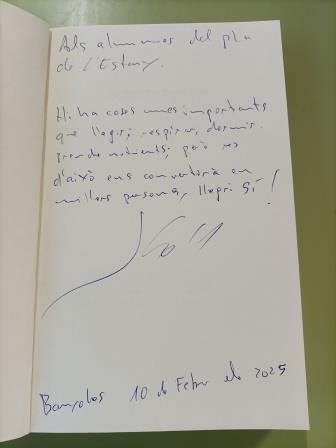 Als alumnes del pla
de l'Estany.
Hi ha coses més importants
que llegir; respirar, dormir.
prendre nutrients; però res
d'això ens convertirà en
millors persones, llegir sí!
Banyoles 10 de Febrer de 2025